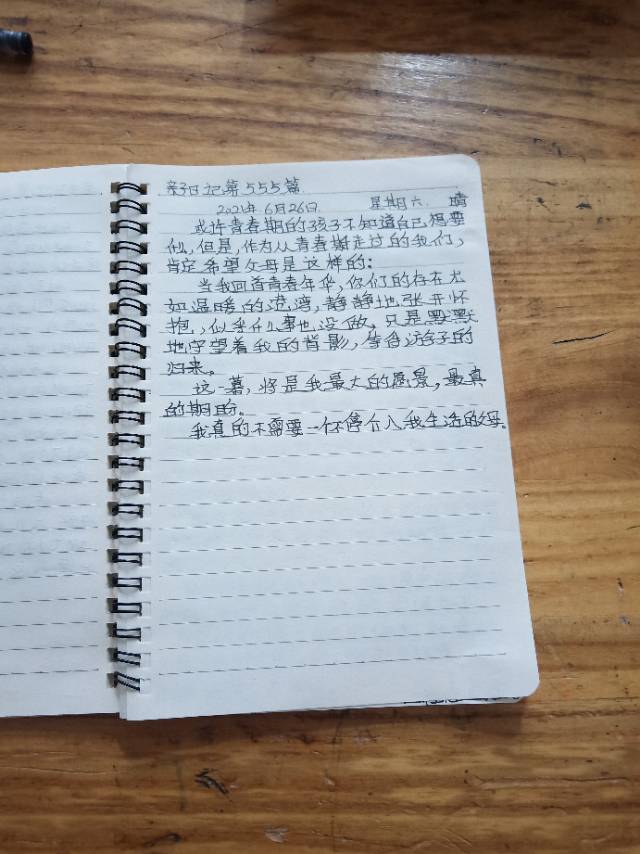 亲子日记第555篇
2021年6月26日 星期六. 晴
或许青春期的孩子不知道自己想要
但是,作为从青春期走过的我们,
肯定希望父母是这样的:
当我回首青春年华,你们的存在尤
如温暖的港湾,静静地张开怀
抱,似乎什么事也没做,只是默默
地守望着我的背影,等待游子的
归来。
这一幕,将是我最大的愿景,最真
的期盼。
我真的不需要一个不停介入我生活的父母。